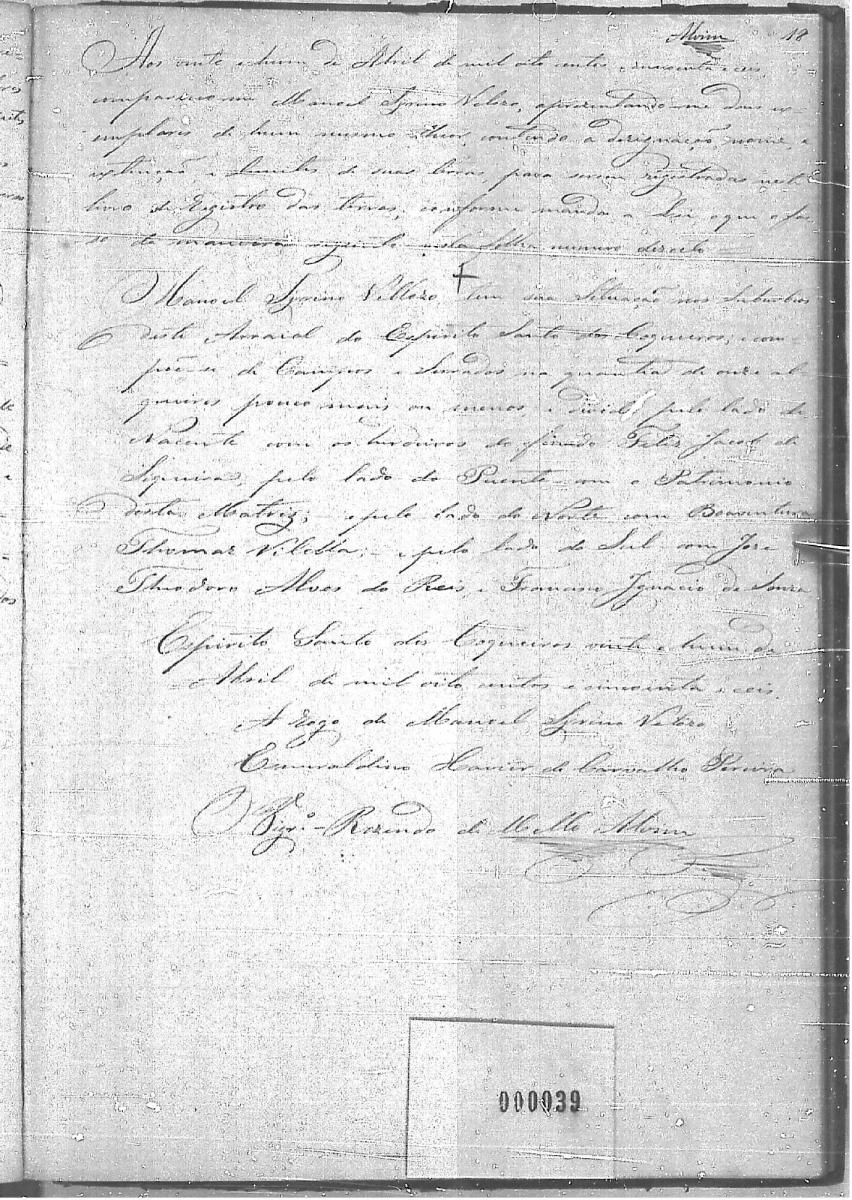 Alvim 18
Aos vinte e hum de Abril de mil oito centos e cincoenta e ceis,
compareceo-me Manoel Cyrino Vellozo, aprezentando-me dous ex-
emplares de hum mesmo theor, contendo a dezignação, nome, e
extenção, e limites de suas terras, para serem registradas neste
livro de Registro das terras, conforme manda a Lei, o que o fa-
ço da maneira seguinte nesta folha numero dezoito
Manoel Cyrino Vellozo, tem sua Situação nos Suburbios
deste Arraial do Espirito Santo dos Coqueiros, e com-
põe-se de Campos e Serrados na quantia de onze al-
queires pouco mais ou menos, e divide pelo lado do
Nacente com os herdeiros do finado Feliz Jacob de
Siqueira, pelo lado do Puente com o Patrimonio
desta Matriz; e pelo lado do Norte com Boaventura
Thomaz Vilella; e pelo lado do Sul com Joze
Theodoro Alves do Reis, e Francisco Ignacio de Souza
Espirito Santo dos Coqueiros vinte e hum de
Abril de mil oito centos e cincoenta e ceis.
A Rogo de Manoel Cyrino Velozo
Esmeraldino Xavier de Carvalho Pereira
O Vigr.º Rozendo de Mello Alvim
000039